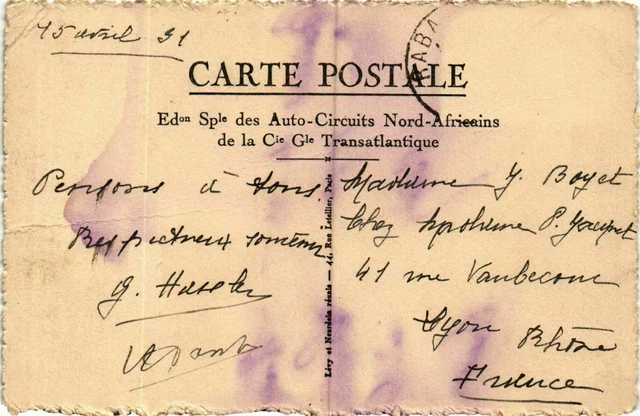 15 avril 31
RABA
CARTE POSTALE
Edon Sple des Auto-Circuits Nord-Africains
de la Cie Gle Transatlantique
Pensons à tous
Respectueux
Madame Y. Boyet
Chez Madame P.
41 rue Vaubecour
Lyon Rhône
France
Lévy et Neurdein réunis — 44, Rue Letellier, Paris